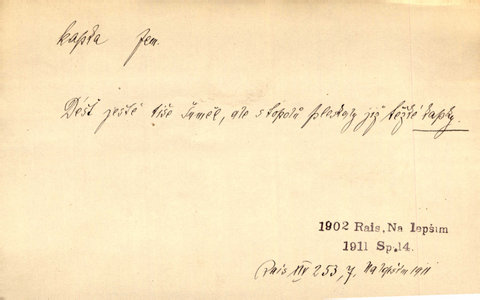 kapka fem.
Déšť ještě tiše šuměl, ale s topolů pleskaly již těžké kapky.
1902 Rais, Na lepším
1911 Sp. 14.
Rais XIV 253, Na lepším 1911